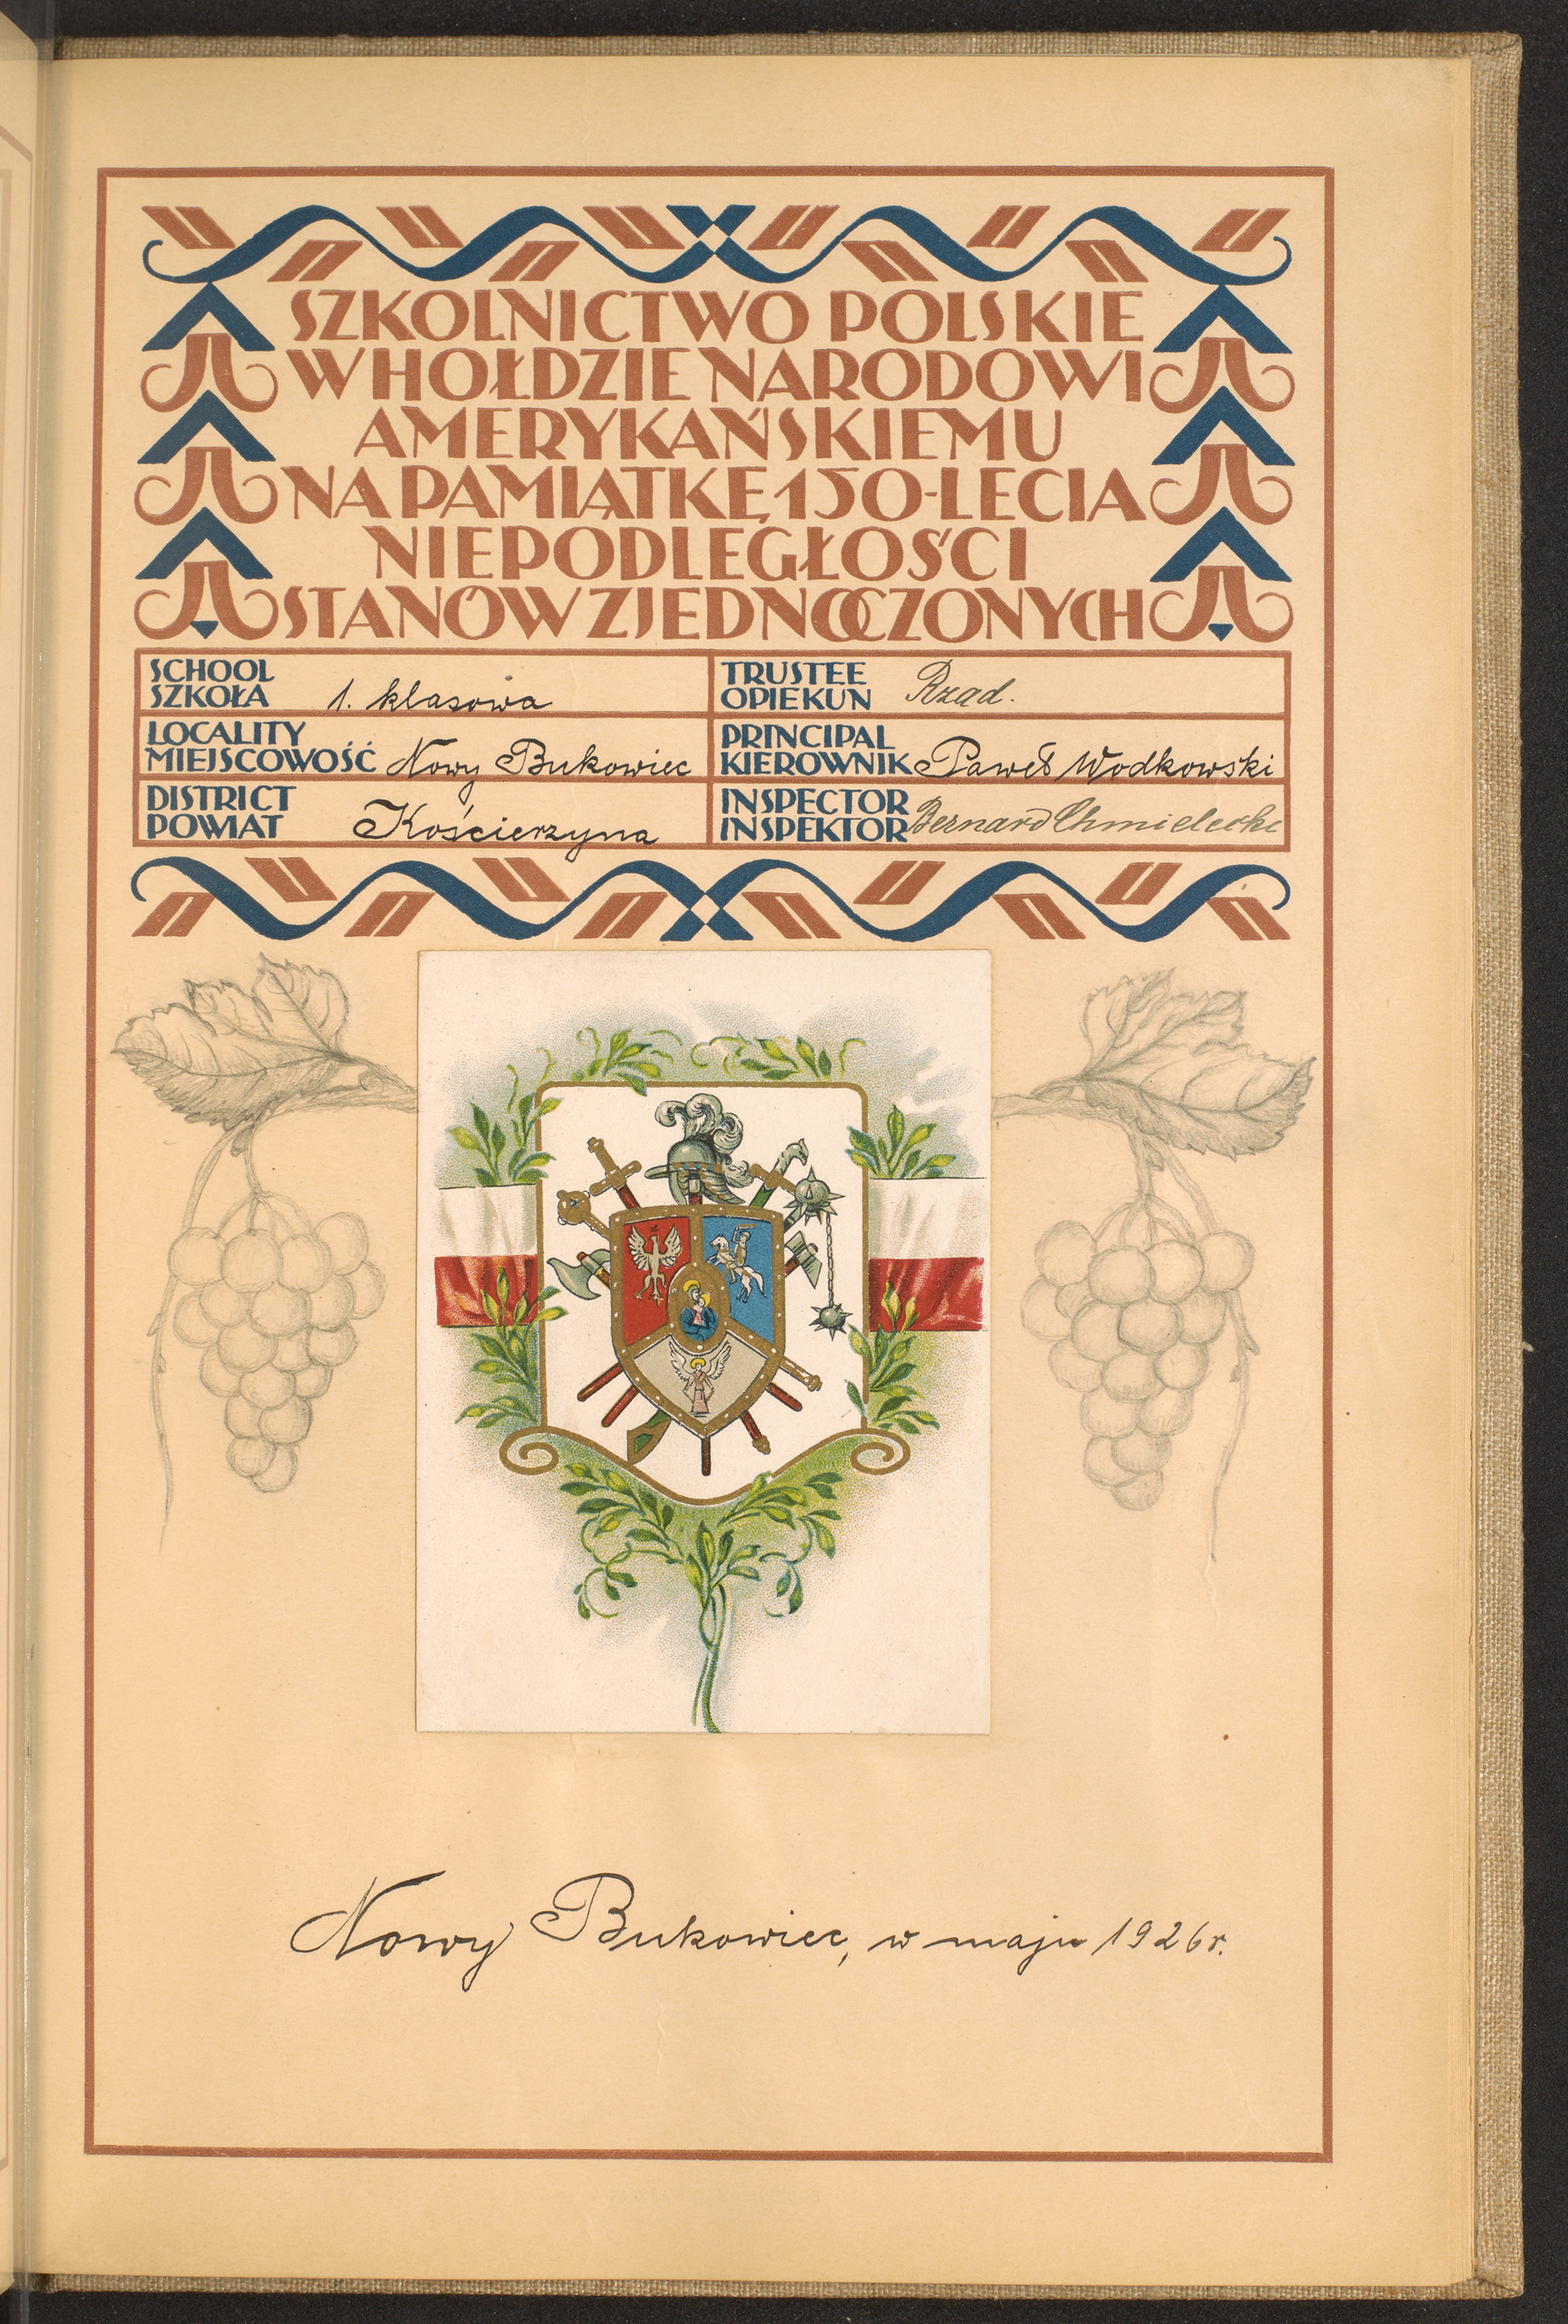 SZKOLNICTWO POLSKIE
W HOŁDZIE NARODOWI
AMERYKAŃSKIEMU
NA PAMIĄTKĘ 150-LECIA
NIEPODLEGŁOŚCI
STANÓW ZJEDNOCZONYCH
SCHOOL
SZKOŁA 1. klasowa
TRUSTEE
OPIEKUN Rząd.
LOCALITY
MIEJSCOWOŚĆ Nowy Bukowiec
PRINCIPAL
KIEROWNIK Paweł Wodkowski
DISTRICT
POWIAT Kościerzyna
INSPECTOR
INSPEKTOR Bernard Chmielecki
Nowy Bukowiec, w maju 1926 r.